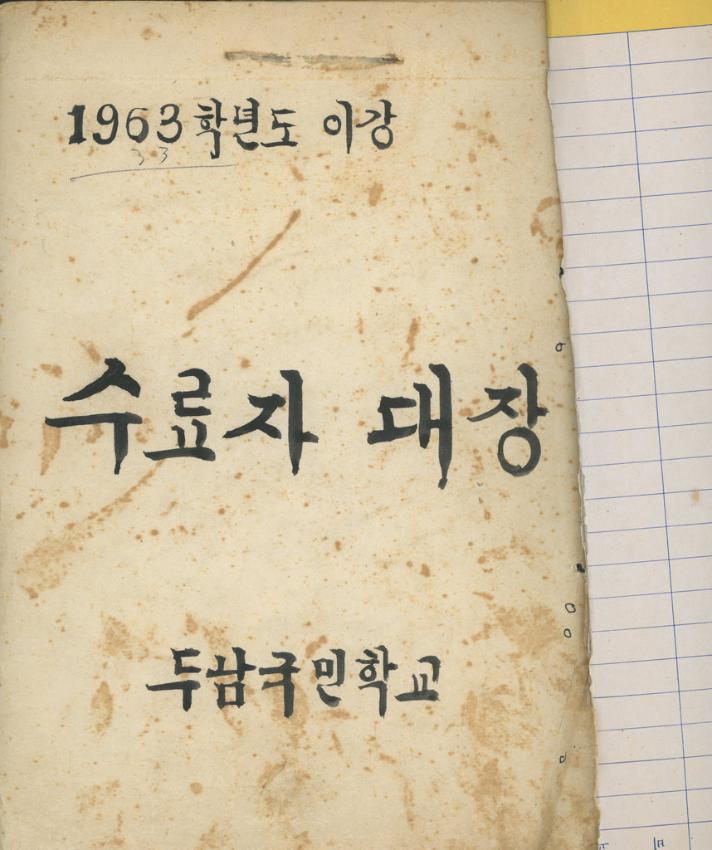 1963학년도 이강
33
수료자 대장
두남국민학교